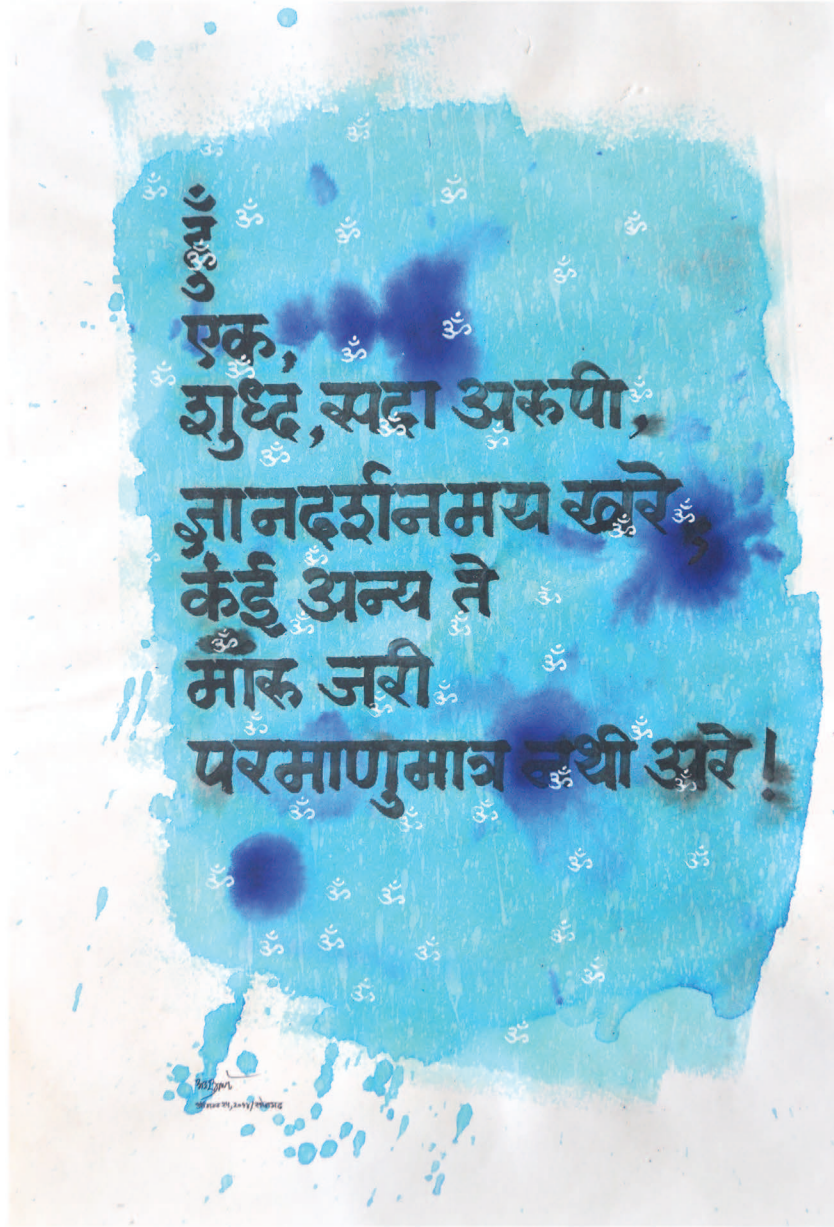 एक,
शुध्द, सदा अरुपी,
ज्ञानदर्शनमय खरे,
कंई अन्य ते
मारु जरी
परमाणुमात्र नथी अरे!